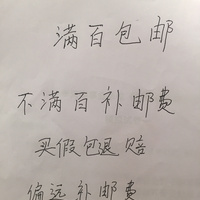 满百包邮
不满百补邮费
买假包退赔
偏远补邮费